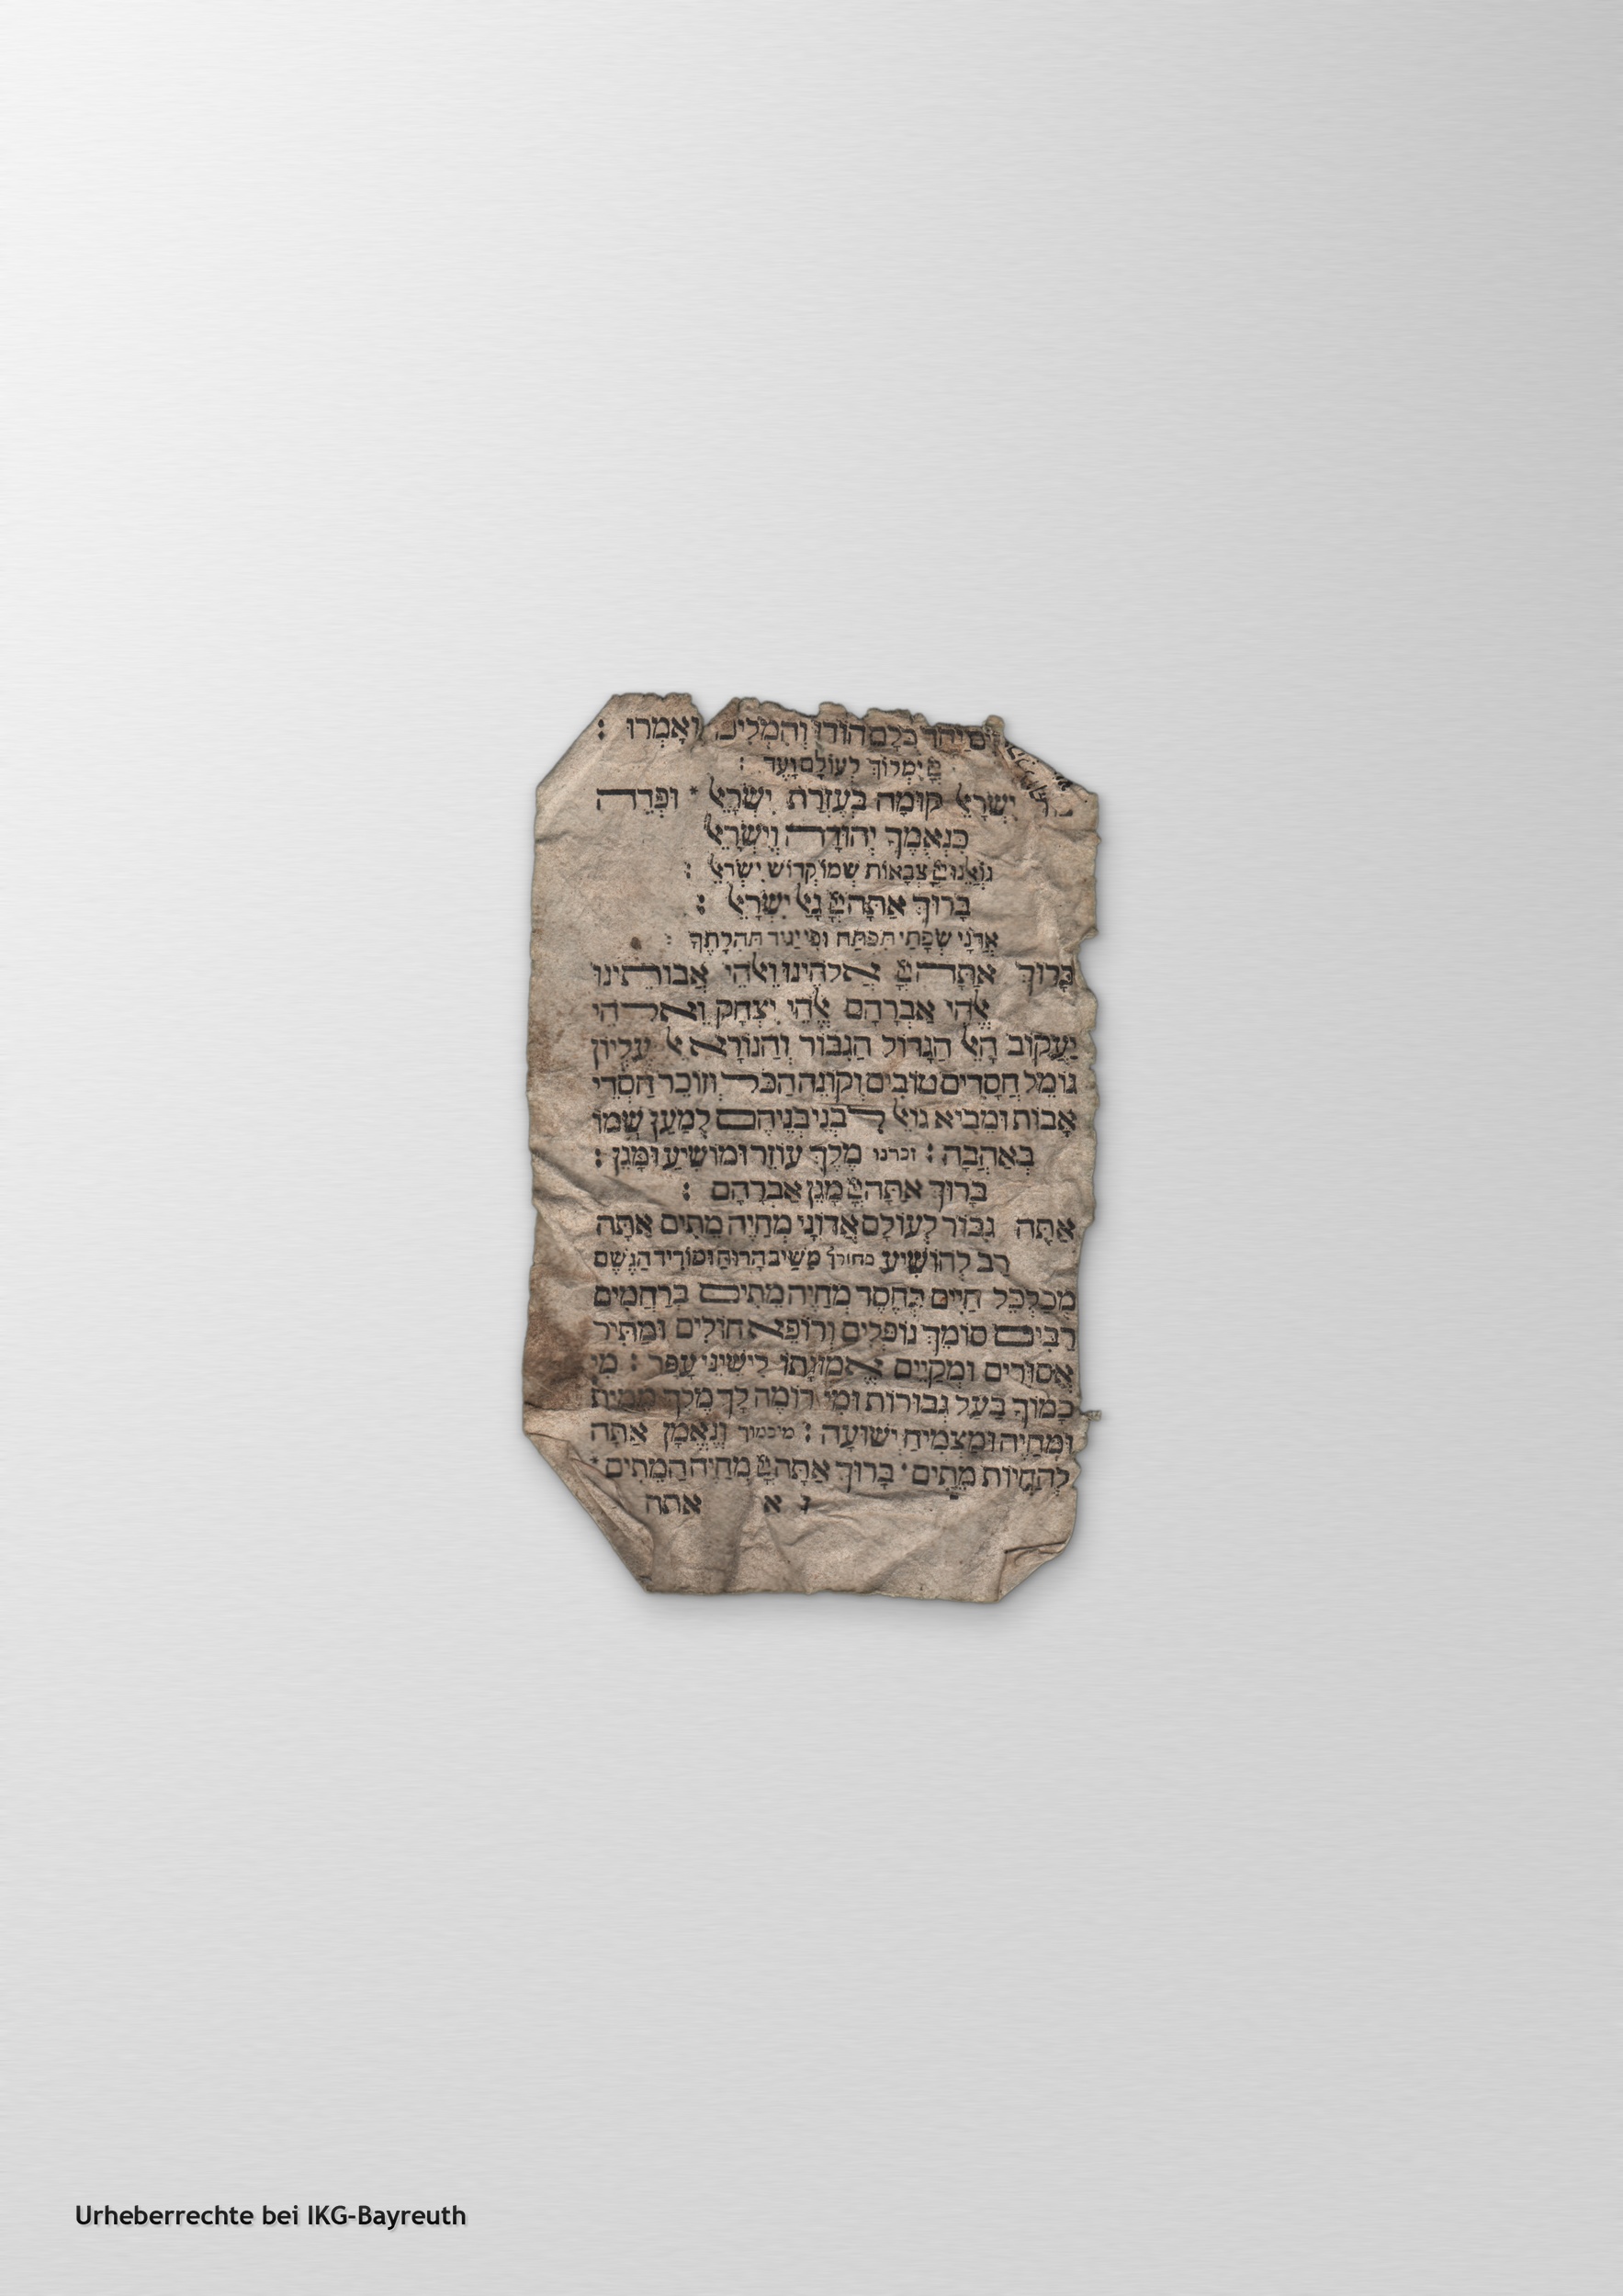 יַחַד כֻּלָּם הוֹדוּ וְהִמְלִיכוּ וְאָמְרוּ :
יְיָ יִמְלוֹךְ לְעוֹלָם וָעֶד :
יִשְׂרָאֵל קוּמָה בְּעֶזְרַת יִשְׂרָאֵל * וּפְדֵה
כִּנְאֻמֶךָ יְהוּדָה וְיִשְׂרָאֵל
גּוֹאֲלֵנוּ יְיָ צְבָאוֹת שְׁמוֹ קְדוֹשׁ יִשְׂרָאֵל :
בָּרוּךְ אַתָּה יְיָ גָּאַל יִשְׂרָאֵל :
אֲדֹנָי שְׂפָתַי תִּפְתָּח וּפִי יַגִּיד תְּהִלָּתֶךָ :
בָּרוּךְ אַתָּה יְיָ אֱלֹהֵינוּ וֵאלֹהֵי אֲבוֹתֵינוּ
אֱלֹהֵי אַבְרָהָם אֱלֹהֵי יִצְחָק וֵאלֹהֵי
יַעֲקוֹב הָאֵל הַגָּדוֹל הַגִּבּוֹר וְהַנּוֹרָא אֵל עֶלְיוֹן
גּוֹמֵל חֲסָדִים טוֹבִים וְקוֹנֵה הַכֹּל וְזוֹכֵר חַסְדֵי
אָבוֹת וּמֵבִיא גוֹאֵל לִבְנֵי בְנֵיהֶם לְמַעַן שְׁמוֹ
בְּאַהֲבָה : זכרנו מֶלֶךְ עוֹזֵר וּמוֹשִׁיעַ וּמָגֵן :
בָּרוּךְ אַתָּה יְיָ מָגֵן אַבְרָהָם :
אַתָּה גִבּוֹר לְעוֹלָם אֲדוֹנָי מְחַיֵּה מֵתִים אַתָּה
רַב לְהוֹשִׁיעַ מַשִּׁיב הָרוּחַ וּמוֹרִיד הַגֶּשֶׁם
מְכַלְכֵּל חַיִּים בְּחֶסֶד מְחַיֵּה מֵתִים בְּרַחֲמִים
רַבִּים סוֹמֵךְ נוֹפְלִים וְרוֹפֵא חוֹלִים וּמַתִּיר
אֲסוּרִים וּמְקַיֵּים אֱמוּנָתוֹ לִישֵׁינֵי עָפָר : מִי
כָמוֹךָ בַּעַל גְּבוּרוֹת וּמִי דוֹמֶה לָּךְ מֶלֶךְ מֵמִית
וּמְחַיֶּה וּמַצְמִיחַ יְשׁוּעָה : מיכמוך וְנֶאֱמָן אַתָּה
לְהַחֲיוֹת מֵתִים · בָּרוּךְ אַתָּה יְיָ מְחַיֵּה הַמֵּתִים *
ג א אתה
Urheberrechte bei IKG-Bayreuth